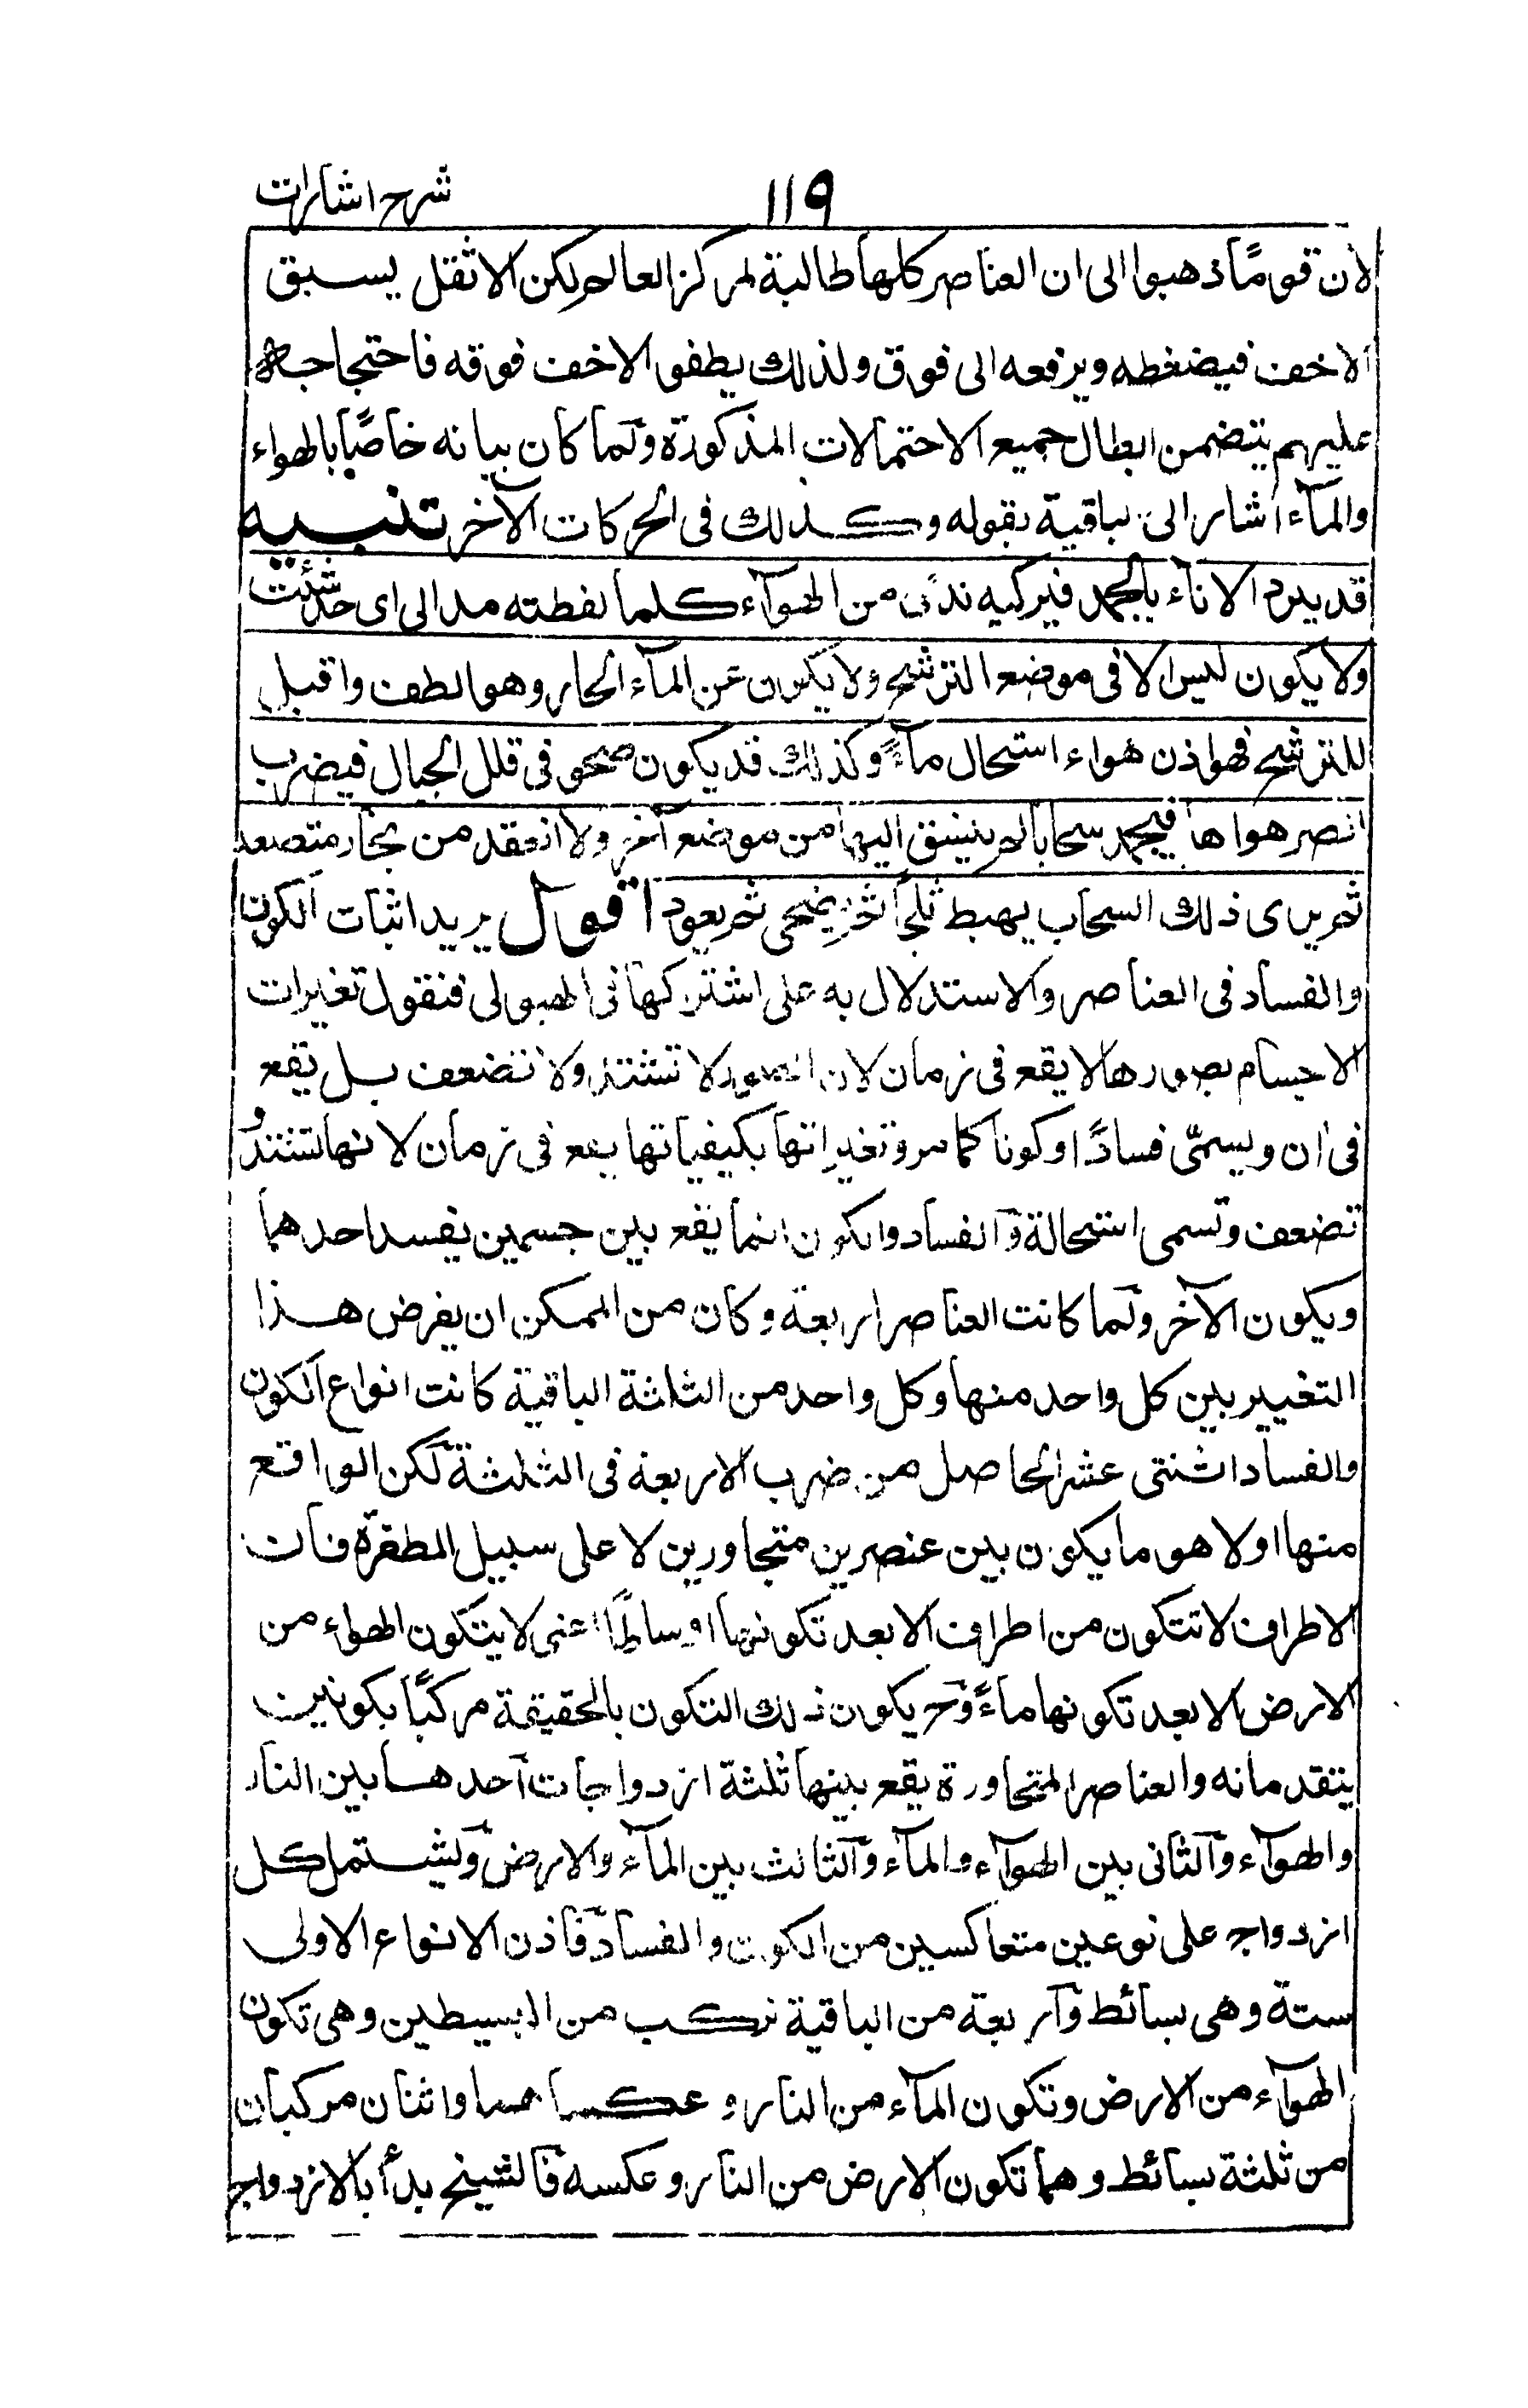 شرح اشارات
١١٩
لان قومًا ذهبوا الى ان العناصر كلها طالبة لمركز العالم لكن الاثقل يسبق
الاخف فيضغطه ويرفعه الى فوق ولذلك يطفو الاخف فوقه فاحتجاجه
عليهم يتضمن ابطال جميع الاحتمالات المذكورة ولما كان بيانه خاصًا بالهواء
والمآء اشار الى باقية بقوله وكذلك فى الحركات الآخر تنبيه
قد يبرد الاناء بالجمد فيركبه ندى من الهوآء كلما لقطته مد الى اى حد شئت
ولا يكون ليس الا فى موضع الترشح ولا يكون عن المآء الحار وهو الطف واقبل
للترشح فهو اذن هواء استحال مآءً وكذلك قد يكون صحو فى قلل الجبال فيضرب
الصر هواها فيجمد سحابا لم ينسق اليها من موضع آخر ولا انعقد من بخار متصعد
ثم يرى ذلك السحاب يهبط ثلجا ثم يضحى ثم يعود اقول يريد اثبات الكون
والفساد فى العناصر والاستدلال به على اشتراكها فى الهيولى فنقول تغيرات
الاجسام بصورها لا يقع فى زمان لان الصور لا تشتد ولا تضعف بل تقع
فى ان ويسمّى فسادًا وكونا كما مر وتغيراتها بكيفياتها يقع فى زمان لانها تشتد و
تضعف وتسمى استحالة والفساد والكون انما يقع بين جسمين يفسد احدهما
ويكون الآخر ولما كانت العناصر اربعة وكان من الممكن ان يفرض هذا
التغيير بين كل واحد منها وكل واحد من الثلثة الباقية كانت انواع الكون
والفساد اثنتى عشر الحاصل من ضرب الاربعة فى الثلثة لكن الواقع
منها اولا هو ما يكون بين عنصرين متجاورين لا على سبيل الطفرة فان
الاطراف لا تتكون من اطراف الا بعد تكونها اوساطًا اعنى لا يتكون الهواء من
الارض الا بعد تكونها ماءً وح يكون ذلك التكون بالحقيقة مركبًا بكونين
يتقدمانه والعناصر المتجاورة يقع بينها ثلثة ازدواجات آحدها بين النار
والهوآء وآلثانى بين الهوآء والمآء وآلثالث بين المآء والارض ويشتمل كل
ازدواج على نوعين متعاكسين من الكون والفساد فاذن الانواع الاولى
ستة وهى بسائط وآربعة من الباقية تركب من البسيطين وهى تكون
الهوآء من الارض وتكون المآء من النار وعكساهما واثنان مركبان
من ثلثة بسائط وهما تكون الارض من النار وعكسه فالشيخ بدأ بالازدواج